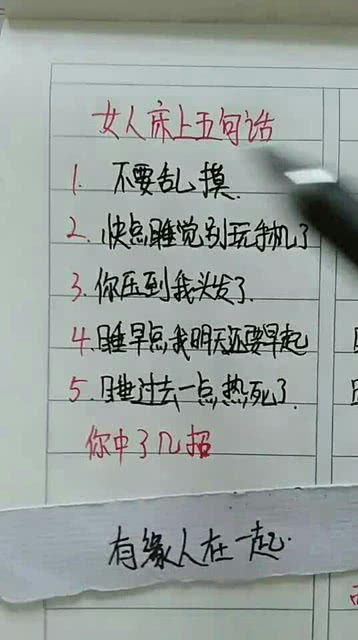 女人床上五句话
1. 不要乱摸.
2. 快点睡觉别玩手机了
3. 你压到我头发了.
4. 睡早点,我明天还要早起
5. 睡过去一点,热死了.
你中了几招
有缘人在一起.